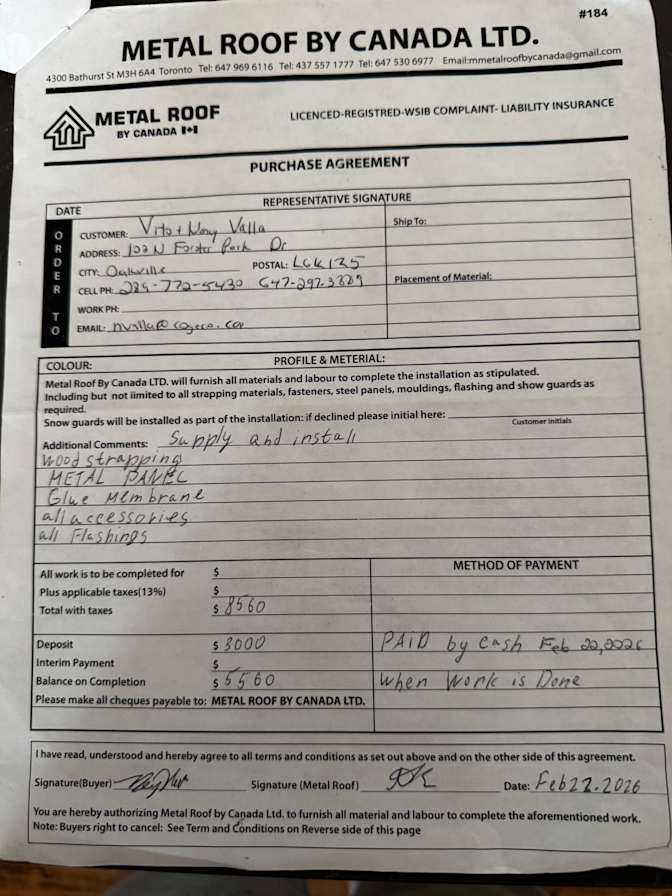 #184
METAL ROOF BY CANADA LTD.
4300 Bathurst St M3H 6A4 Toronto Tel: 647 969 6116 Tel: 437 557 1777 Tel: 647 530 6977 Email:mmetalroofbycanada@gmail.com
METAL ROOF
BY CANADA
LICENCED-REGISTRED-WSIB COMPLAINT- LIABILITY INSURANCE
PURCHASE AGREEMENT
DATE REPRESENTATIVE SIGNATURE
ORDER TO
CUSTOMER: Vito + Valla
Ship To:
ADDRESS: Dr
CITY: Oakville POSTAL:
CELL PH: 289-772-5430
Placement of Material:
WORK PH:
EMAIL:
COLOUR: PROFILE & METERIAL:
Metal Roof By Canada LTD. will furnish all materials and labour to complete the installation as stipulated.
Including but not iimited to all strapping materials, fasteners, steel panels, mouldings, flashing and show guards as
required.
Snow guards will be installed as part of the installation: if declined please initial here:
Customer initials
Additional Comments: Supply and install
wood strapping
METAL PANEL
Glue Membrane
all accessories
all Flashings
All work is to be completed for $
METHOD OF PAYMENT
Plus applicable taxes(13%) $
Total with taxes $ 8560
Deposit $ 3000 PAID by cash Feb 22,2026
Interim Payment $
Balance on Completion $ 5560 when work is Done
Please make all cheques payable to: METAL ROOF BY CANADA LTD.
I have read, understood and hereby agree to all terms and conditions as set out above and on the other side of this agreement.
Signature(Buyer) Signature (Metal Roof) Date: Feb 22.2026
You are hereby authorizing Metal Roof by Canada Ltd. to furnish all material and labour to complete the aforementioned work.
Note: Buyers right to cancel: See Term and Conditions on Reverse side of this page